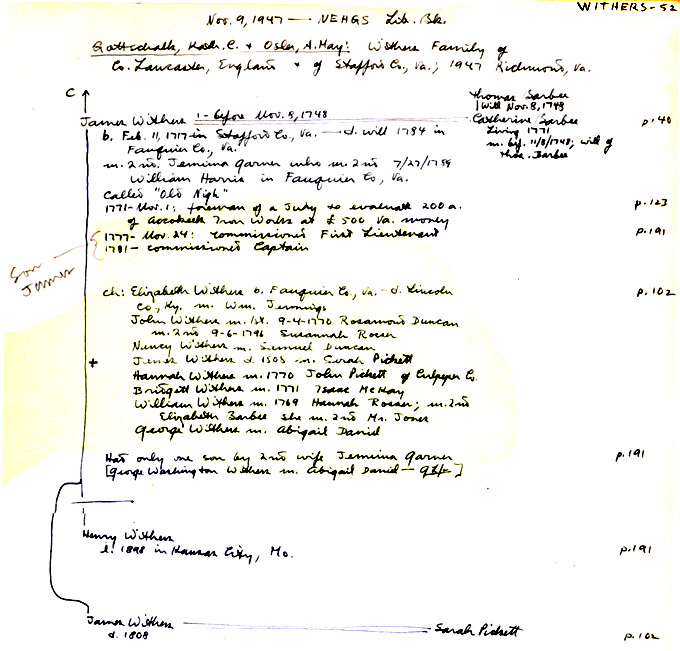 WITHERS-52
Nov. 9, 1947 — NEHGS Lib. Bk.
Gottschalk, Kath. C. & Osler, A. May: Withers Family of
Co. Lancaster, England & of Stafford Co., Va.; 1947 Richmond, Va.
C
Thomas Barbee
Will Nov. 8, 1748
James Withers 1 - before Nov. 8, 1748 Catherine Barbee p. 40
b. Feb. 11, 1717 in Stafford Co., Va. — d. will 1784 in Living 1771
Fauquier Co., Va. m. by 11/8/1748; will of
Thos. Barbee
m. 2nd. Jemima Garner who m. 2nd 7/27/1789
William Harris in Fauquier Co., Va.
Called "Old Nigh"
1771 - Nov. 1: foreman of a Jury to evaluate 200 a. p. 123
of Accokeek Iron Works at £ 500 Va. money
1777 - Nov. 24: commissioned First Lieutenant p. 191
1781 - commissioned Captain
Son
James
ch: Elizabeth Withers b. Fauquier Co., Va. - d. Lincoln p. 102
Co., Ky. m. Wm. Jennings
John Withers m. 1st. 9-4-1770 Rosamond Duncan
m. 2nd 9-6-1796 Susannah Rosser
Nancy Withers m. Samuel Duncan
+ James Withers d. 1808 m. Sarah Pickett
Hannah Withers m. 1770 John Pickett of Culpeper Co.
Bridgett Withers m. 1771 Isaac McKay
William Withers m. 1769 Hannah Rosser; m. 2nd
Elizabeth Barbee she m. 2nd Mr. Jones
George Withers m. Abigail David
Had only one son by 2nd wife Jemima Garner p. 191
[George Washington Withers m. Abigail David — ]
Henry Withers
l. 1898 in Kansas City, Mo. p. 191
James Withers Sarah Pickett
d. 1808 p. 102